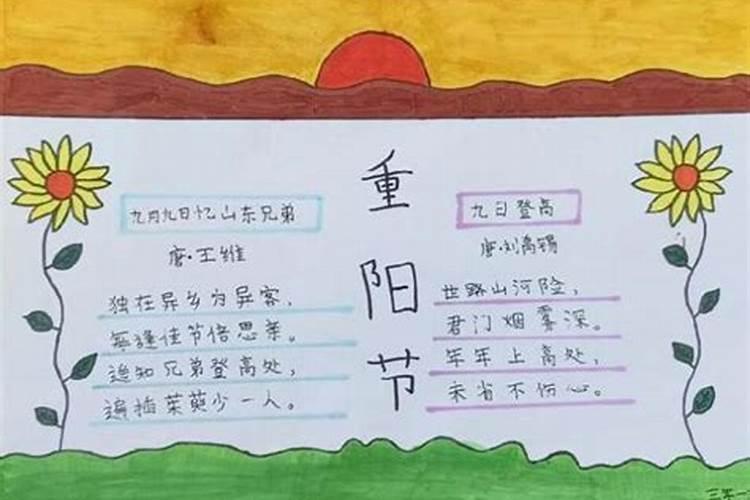 重阳节
九月九日忆山东兄弟
唐·王维
独在异乡为异客,
每逢佳节倍思亲。
遥知兄弟登高处,
遍插茱萸少一人。
九日登高
唐·刘禹锡
世路山河险,
君门烟雾深。
年年上高处,
未省不伤心。
三年一